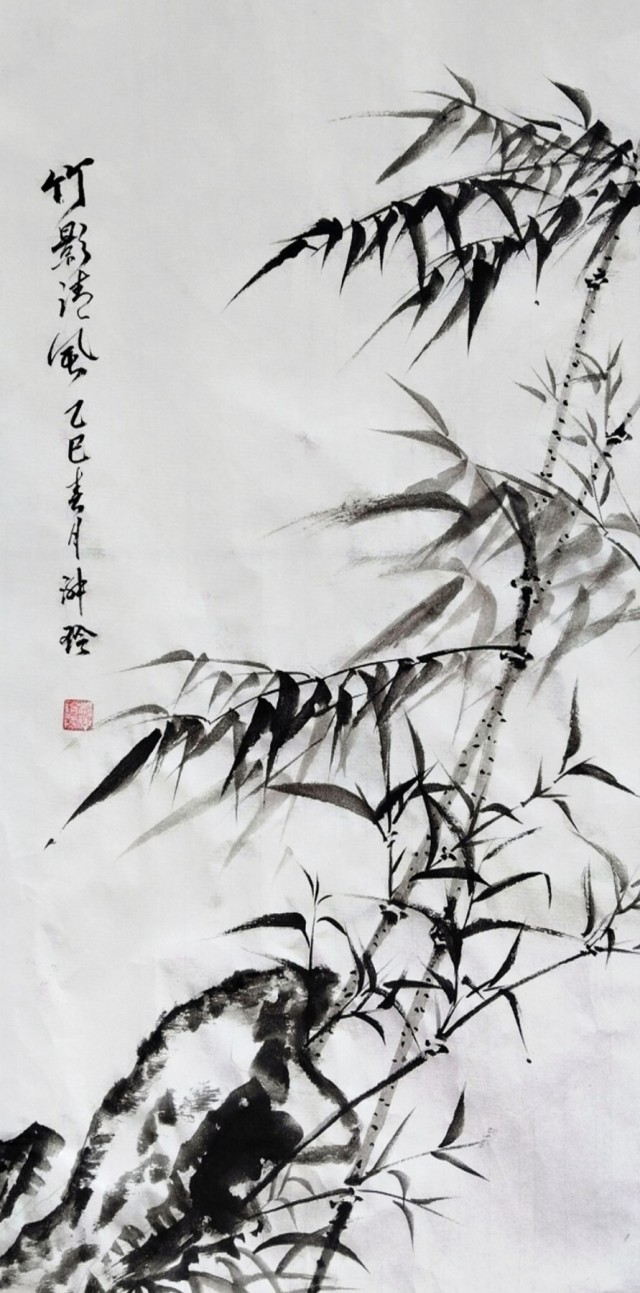 竹影清风乙巳春月